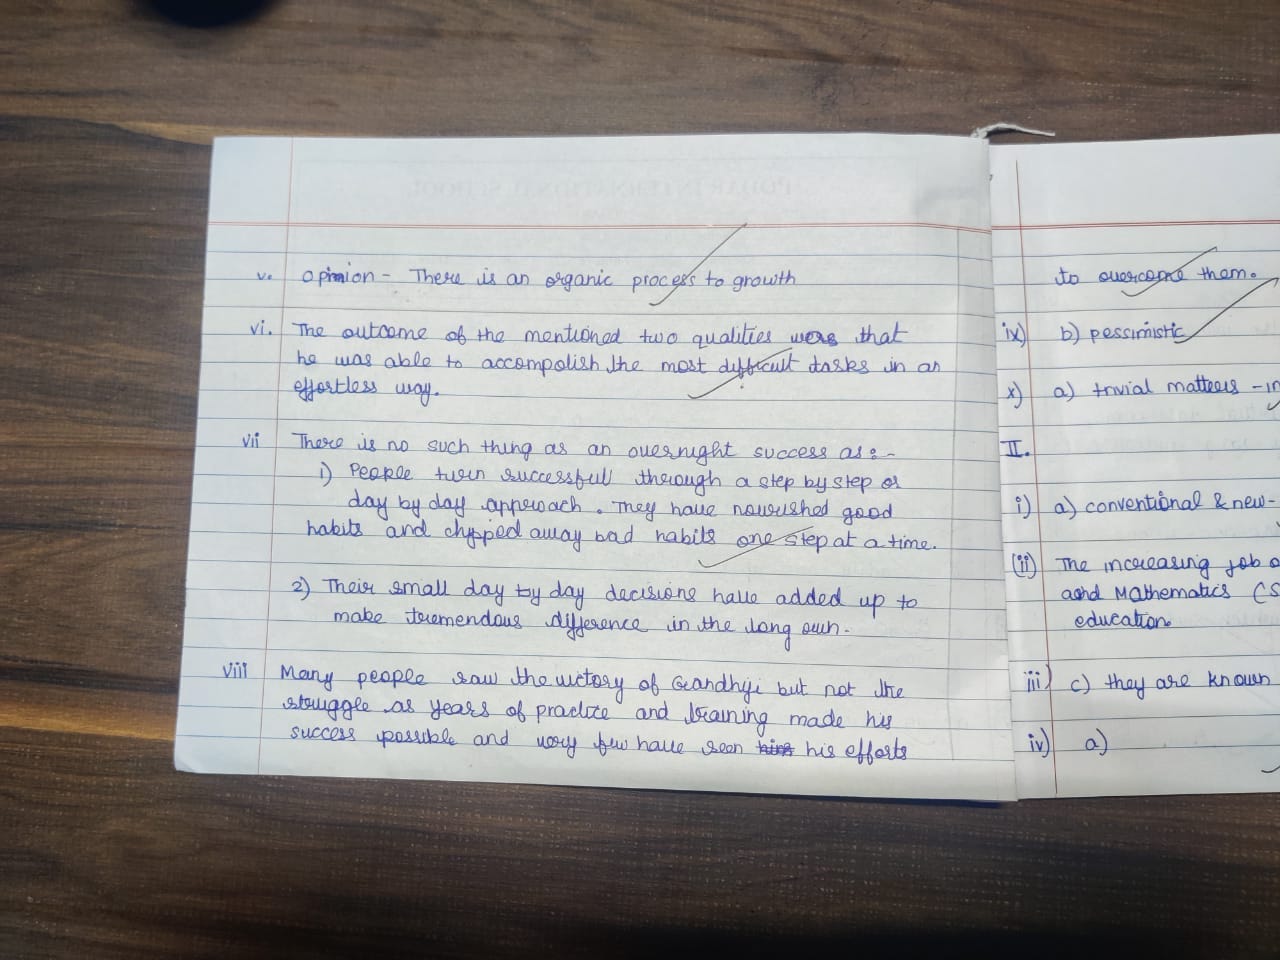 v. opinion - There is an organic process to growth
vi. The outcome of the mentioned two qualities were that
he was able to accompolish the most difficult tasks in an
effortless way.
vii There is no such thing as an overnight success as:-
1) People turn successfull through a step by step or
day by day approach. They have nourished good
habits and chipped away bad habits one step at a time.
2) Their small day by day decisions have added up to
make tremendous difference in the long run.
viii Many people saw the victory of Gandhiji but not the
struggle as years of practice and training made his
success possible and very few have seen his efforts
to overcome them.
ix) b) pessimistic
x) a) trivial matters - in
II.
i) a) conventional & new-
(ii) The increasing job o
and Mathematics (S
education
iii) c) they are known
iv) a)